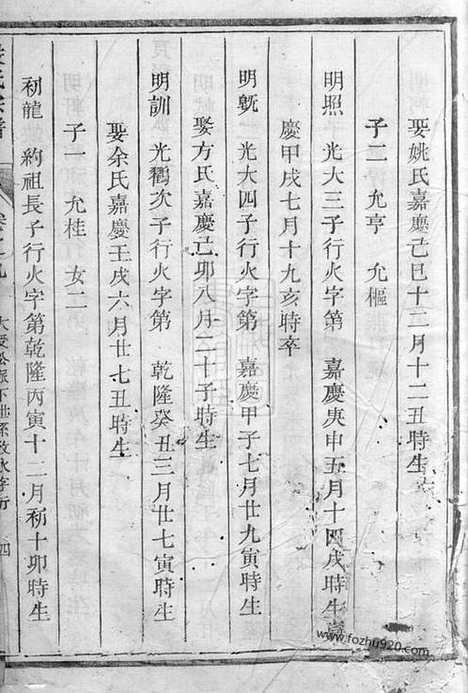 娶姚氏嘉慶己巳十二月十二丑時生
子二 允亨 允樞
明照 光大三子行火字第 嘉慶庚申五月十四戌時生嘉
慶甲戌七月十九亥時卒
明旣 光大四子行火字第 嘉慶甲子七月廿九寅時生
娶方氏嘉慶己卯八月二十子時生
明訓 光鸛次子行火字第 乾隆癸丑三月廿七寅時生
娶余氏嘉慶壬戌六月廿七丑時生
子一 允桂 女二
初龍 約祖長子行火字第乾隆丙寅十二月初十卯時生
氏宗譜 卷之九 四
www.fozhu920.com